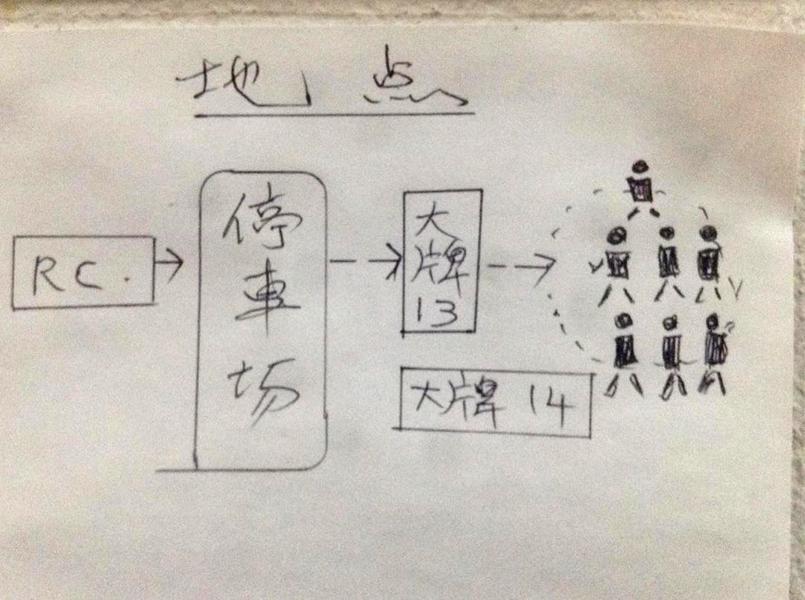 地点
RC.
停
車
场
大
牌
13
大牌 14